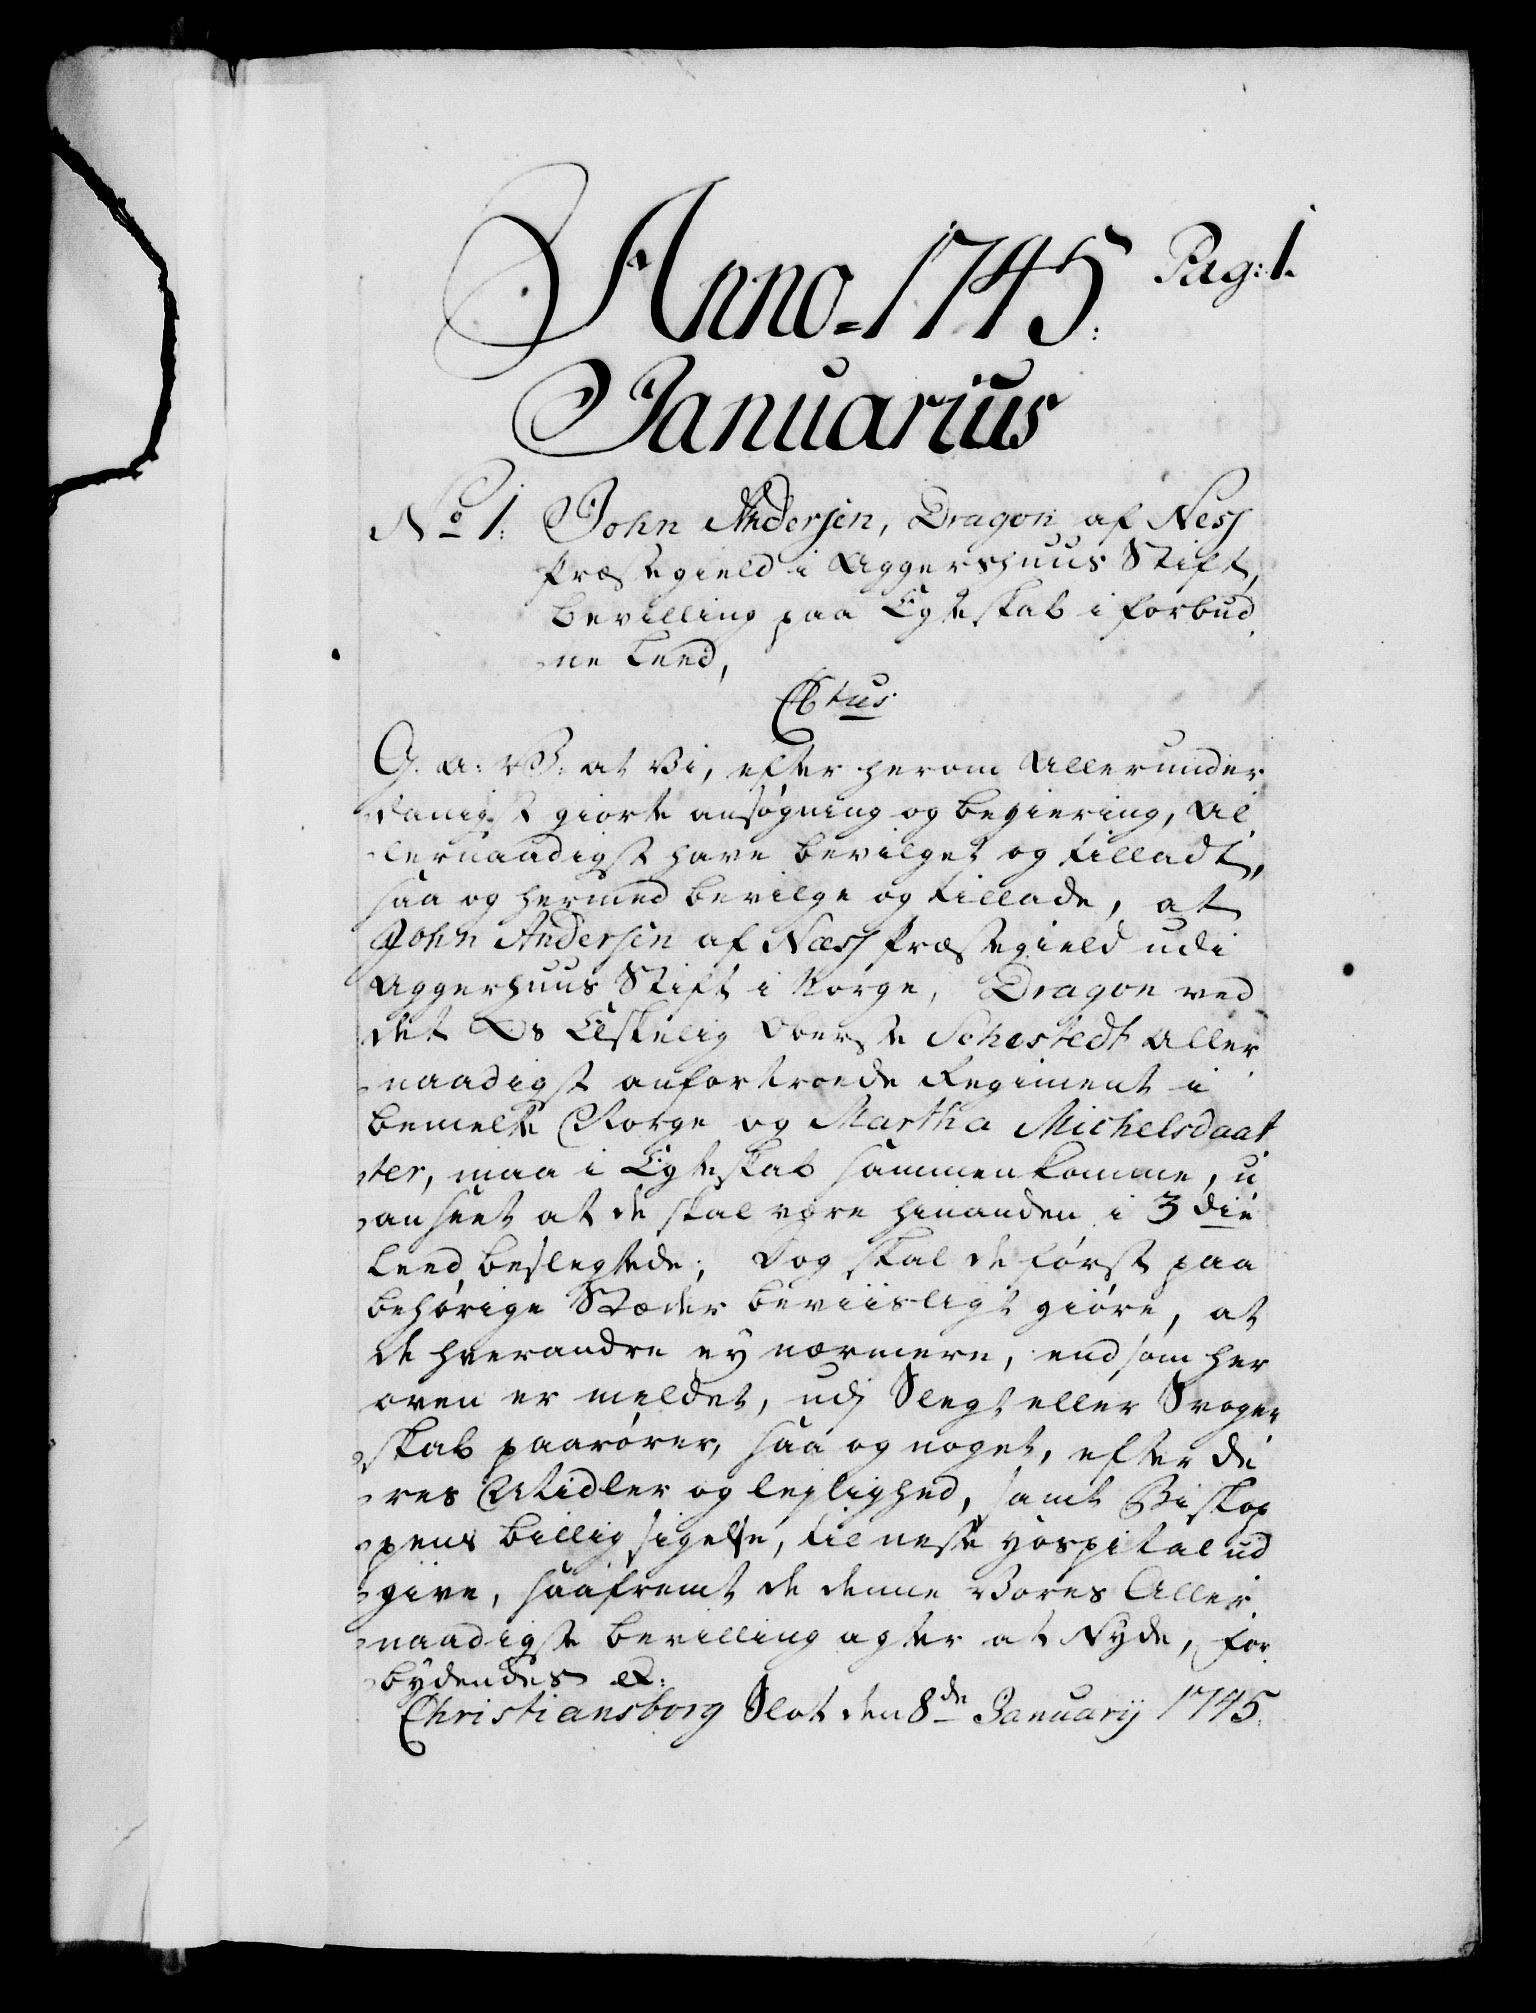 Anno 1745. Pag: 1.
Januarius
No 1. John Andersen, Dragon af Ness
Præstegield i Aggershuus Stift,
bevilling paa Egteskab i forbud
ne Leed,
Ctus
G. A: V: at Vi, efter herom Allerunder
danigst giorte ansøgning og begiering, Al
lernaadigst have bevilget og tilladt,
saa og hermed bevilge og tillade, at
John Andersen af Næss Præstegield udi
Aggerhuus Stift i Norge, Dragon ved
det Os Elskelig Oberste Schestedt Aller
naadigst anfortroede Regiment i
bemelte Norge og Martha Michelsdaat
ter, maa i Egteskab sammenkomme, u
anseet at de skal være hinanden i 3die
Leed beslegtede; Dog skal de først paa
behørige Stæder beviisligt giøre, at
de hverandre ey nærmere, end som her
oven er meldet, udj Slegt eller Svoger
skab paarører, saa og noget, efter de
res Midler og lejlighed, samt Biskop
pens billig sigelse, til neste Hospital ud
give, saafremt de denne Vores Aller
naadigste bevilling agter at Nyde, for
bydendes etc:
Christiansborg Slot den 8de Januarij 1745.